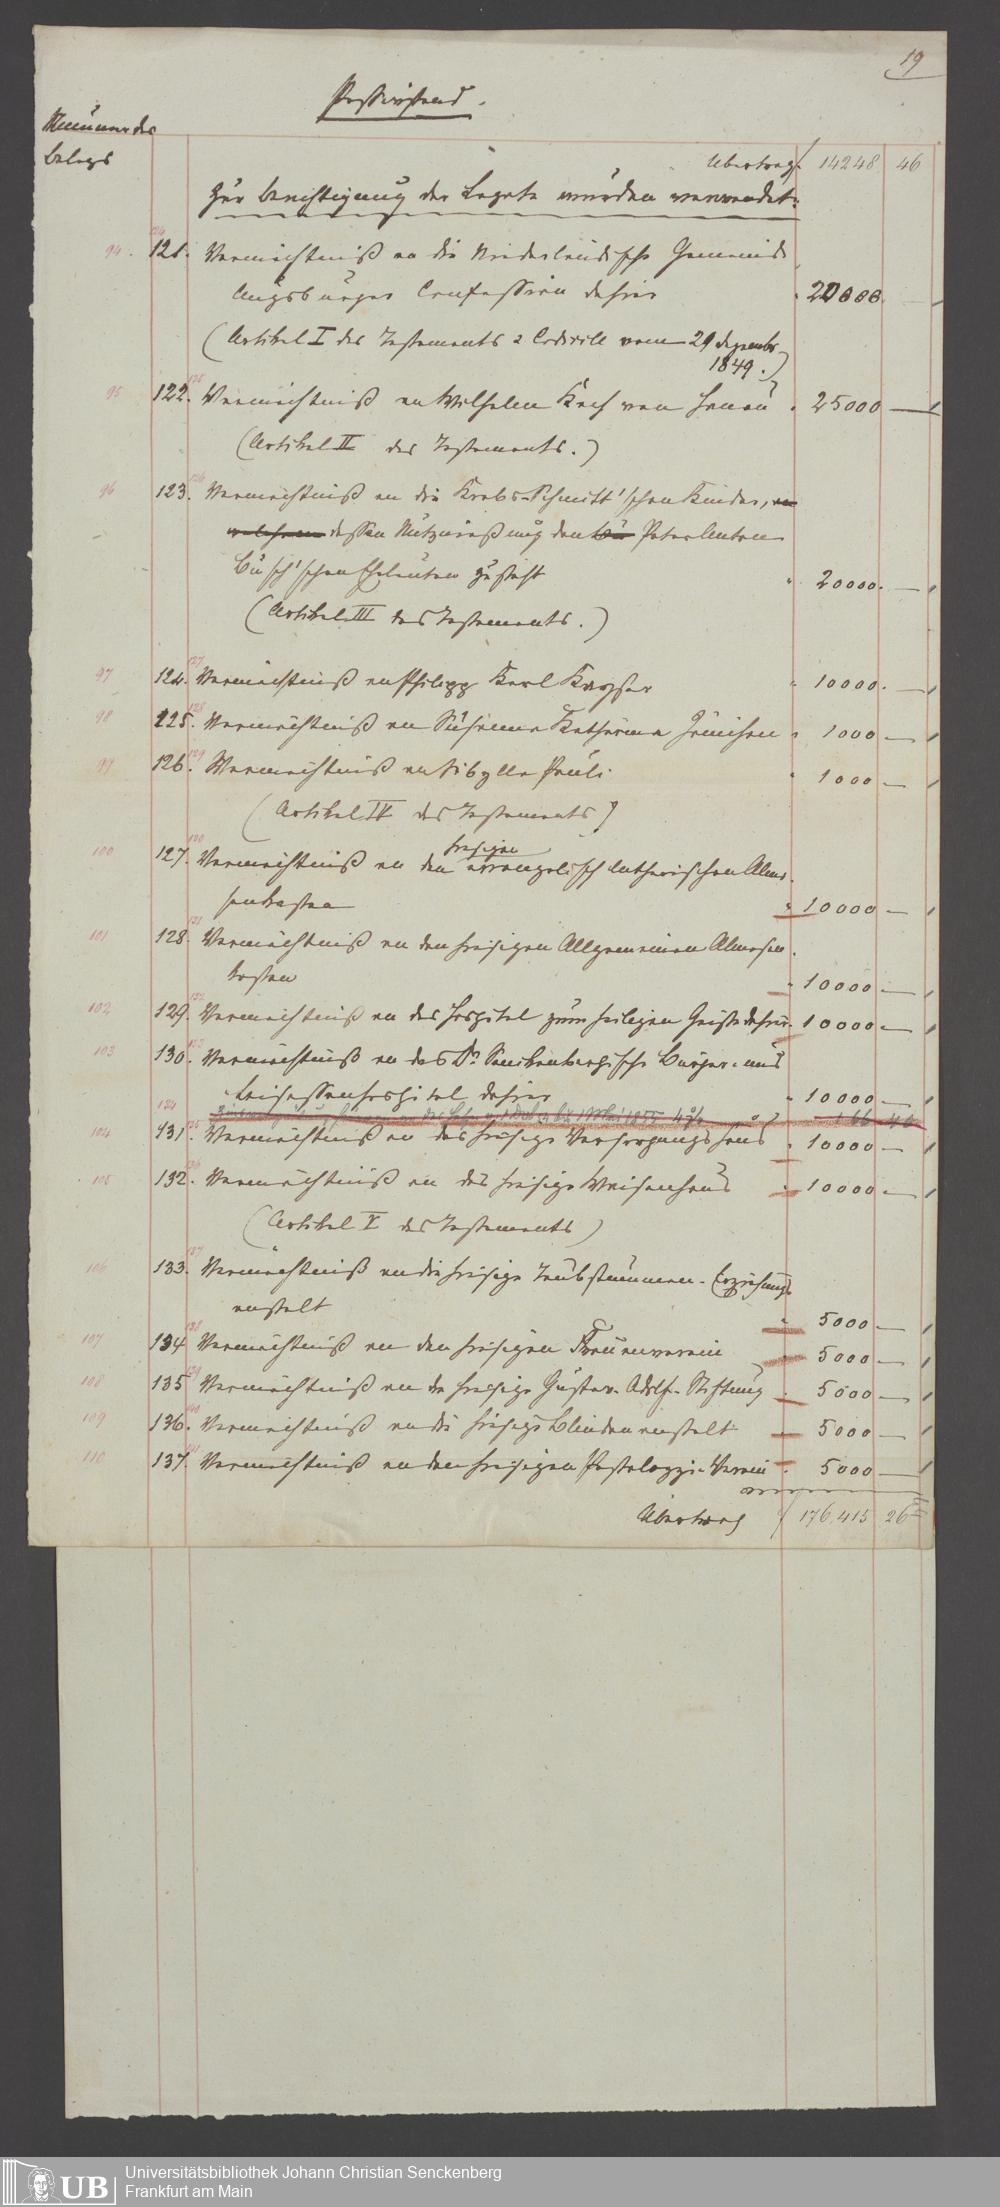 19
Passivstand.
Nummer des
Belegs
Übertrag f. 14248 46
Zur Berichtigung der Legate wurden verwendet:
94. 124 121. Vermächtniß an die Niederländische Gemeinde
Augsburger Confession dahier " 20000 —
(Artikel I des Testaments & Codicill vom 29 Dezember
1849.)
95 125 122. Vermächtniß an Wilhelm Koch von Hanau " 25000 —
(Artikel II des Testaments.)
96 126 123. Vermächtniß an die Krebs-Schmitt'schen Kinder, an
welchem dessen Nutznießung den Peter Anton
Busch'schen Eheleuten zusteht " 20000. —
(Artikel III des Testaments.)
97 127 124. Vermächtniß an Philipp Karl Kayser " 10000. —
98 128 125. Vermächtniß an Susanna Katharina Hänischen " 1000 —
99 129 126. Vermächtniß an Sibylla Pauli " 1000 —
(Artikel IV des Testaments)
hiesigen
100 130 127. Vermächtniß an den evangelisch lutherischen Almo-
senkasten " 10000 —
101 131 128. Vermächtniß an den hiesigen Allgemeinen Almosen-
kasten " 10000 —
102 132 129. Vermächtniß an das Hospital zum heiligen Geiste dahier " 10000 —
103 133 130. Vermächtniß an das Dr. Senckenbergische Bürger- und
Beisassenhospital dahier " 10000 —
134 1855 4% 166 40
104 135 131. Vermächtniß an das hiesige Versorgungshaus " 10000 —
105 136 132. Vermächtniß an das hiesige Waisenhaus " 10000 —
(Artikel V des Testaments)
106 137 133. Vermächtniß an die hiesige Taubstummen-Erziehungs
anstalt " 5000 —
107 138 134 Vermächtniß an den hiesigen Frauenverein " 5000 —
108 139 135 Vermächtniß an die hiesige Gustav-Adolf-Stiftung " 5000 —
109 140 136. Vermächtniß an die hiesige Blindenanstalt " 5000 —
110 141 137. Vermächtniß an den hiesigen Pestalozzi-Verein " 5000 —
Übertrag f 176,415 26
UB Universitätsbibliothek Johann Christian Senckenberg
Frankfurt am Main